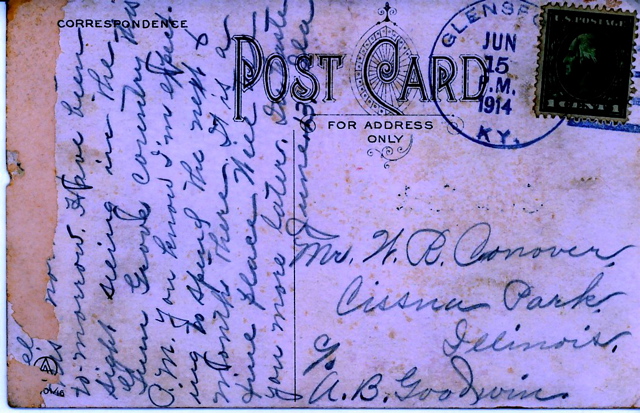 CORRESPONDENCE
POST CARD
FOR ADDRESS
ONLY
GLENSF
JUN
15
P.M.
1914
KY.
U.S. POSTAGE
1 CENT 1
to-morrow. Have been
sight seeing in the
Grove country this
P.M. You know I'm
ing to spend the next
month there. It is a
fine place. Will
you more later.
June
Mr. W. R. Conover.
Cissna Park.
Illinois.
c/o
A. B. Goodwin.